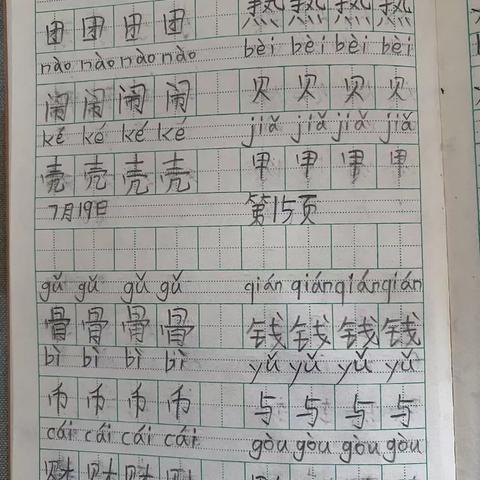 团 团 团 团 热 热 热 热
nào nào nào nào bèi bèi bèi bèi
闹 闹 闹 闹 贝 贝 贝 贝
ké ké ké ké jiǎ jiǎ jiǎ jiǎ
壳 壳 壳 壳 甲 甲 甲 甲
7月19日 第15页
gǔ gǔ gǔ gǔ qián qián qián qián
骨 骨 骨 骨 钱 钱 钱 钱
bì bì bì bì yǔ yǔ yǔ yǔ
币 币 币 币 与 与 与 与
cái cái cái cái gòu gòu gòu gòu
财 财 财 财